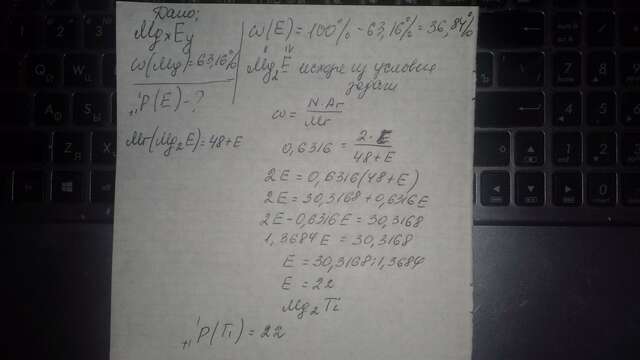 Дано:
MgₓEy
ω(Mg)=63,16%
₁¹P(E)-?
Mr(Mg₂E)=48+E
ω(E)=100%-63,16%=36,84%
II IV
Mg₂E исходя из условия
задачи
ω = N·Ar / Mr
0,6316 = 2·E / 48+E
2E=0,6316(48+E)
2E=30,3168+0,6316E
2E-0,6316E=30,3168
1,3684E=30,3168
E=30,3168:1,3684
E=22
Mg₂Ti
₁¹P(Ti)=22